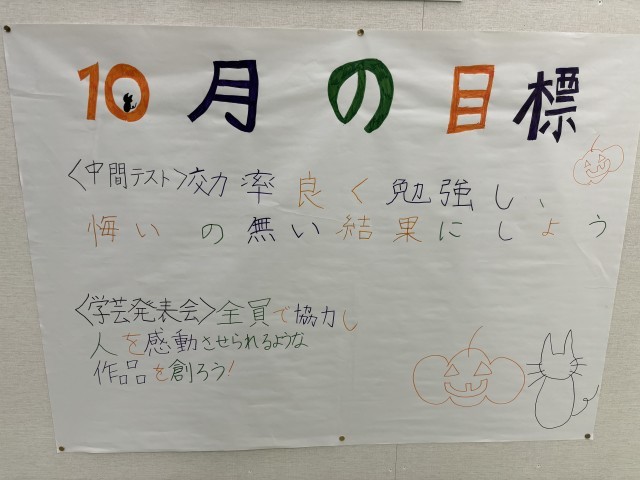 10月の目標
〈中間テスト〉効率良く勉強し、
悔いの無い結果にしよう
〈学芸発表会〉全員で協力し
人を感動させられるような
作品を創ろう!